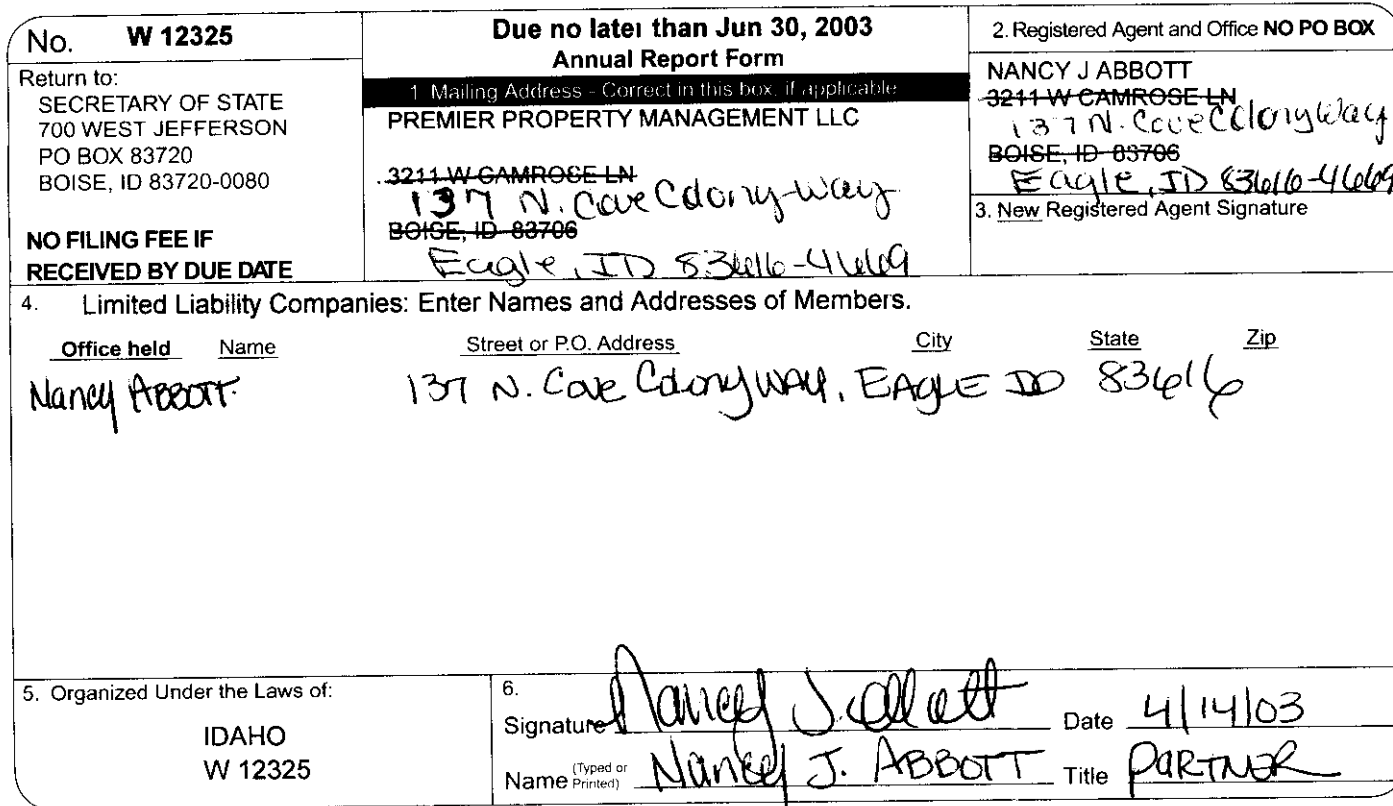 No. W 12325
Return to:
SECRETARY OF STATE
700 WEST JEFFERSON
PO BOX 83720
BOISE, ID 83720-0080
NO FILING FEE IF
RECEIVED BY DUE DATE
Due no later than Jun 30, 2003
Annual Report Form
1 Mailing Address - Correct in this box, if applicable
PREMIER PROPERTY MANAGEMENT LLC
3211 W CAMROSE LN
137 N. Cove Colony Way
BOISE, ID 83706
Eagle, ID 83616-4669
2. Registered Agent and Office NO PO BOX
NANCY J ABBOTT
3211 W CAMROSE LN
137 N. Cove Colony Way
BOISE, ID 83706
Eagle, ID 83616-4669
3. New Registered Agent Signature
4. Limited Liability Companies: Enter Names and Addresses of Members.
Office held Name Street or P.O. Address City State Zip
Nancy Abbott 137 N. Cove Colony Way, EAGLE ID 83616
5. Organized Under the Laws of:
IDAHO
W 12325
6.
Signature Nancy J. Abbott Date 4/14/03
Name (Typed or Printed) Nancy J. ABBOTT Title PARTNER